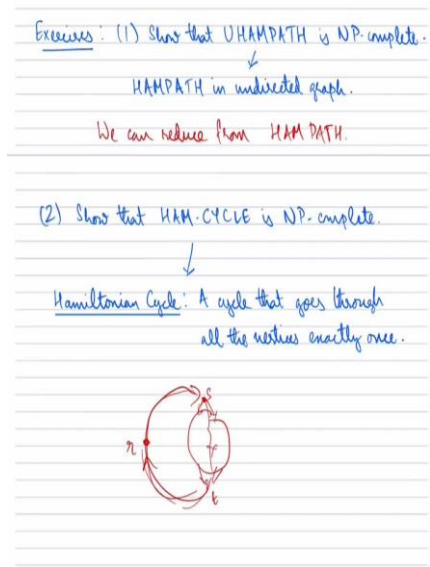 Exercises : (1) Show that UHAMPATH is NP-complete.
HAMPATH in undirected graph.
We can reduce from HAMPATH.
(2) Show that HAM-CYCLE is NP-complete.
Hamiltonian Cycle : A cycle that goes through
all the vertices exactly once.
s
r
t